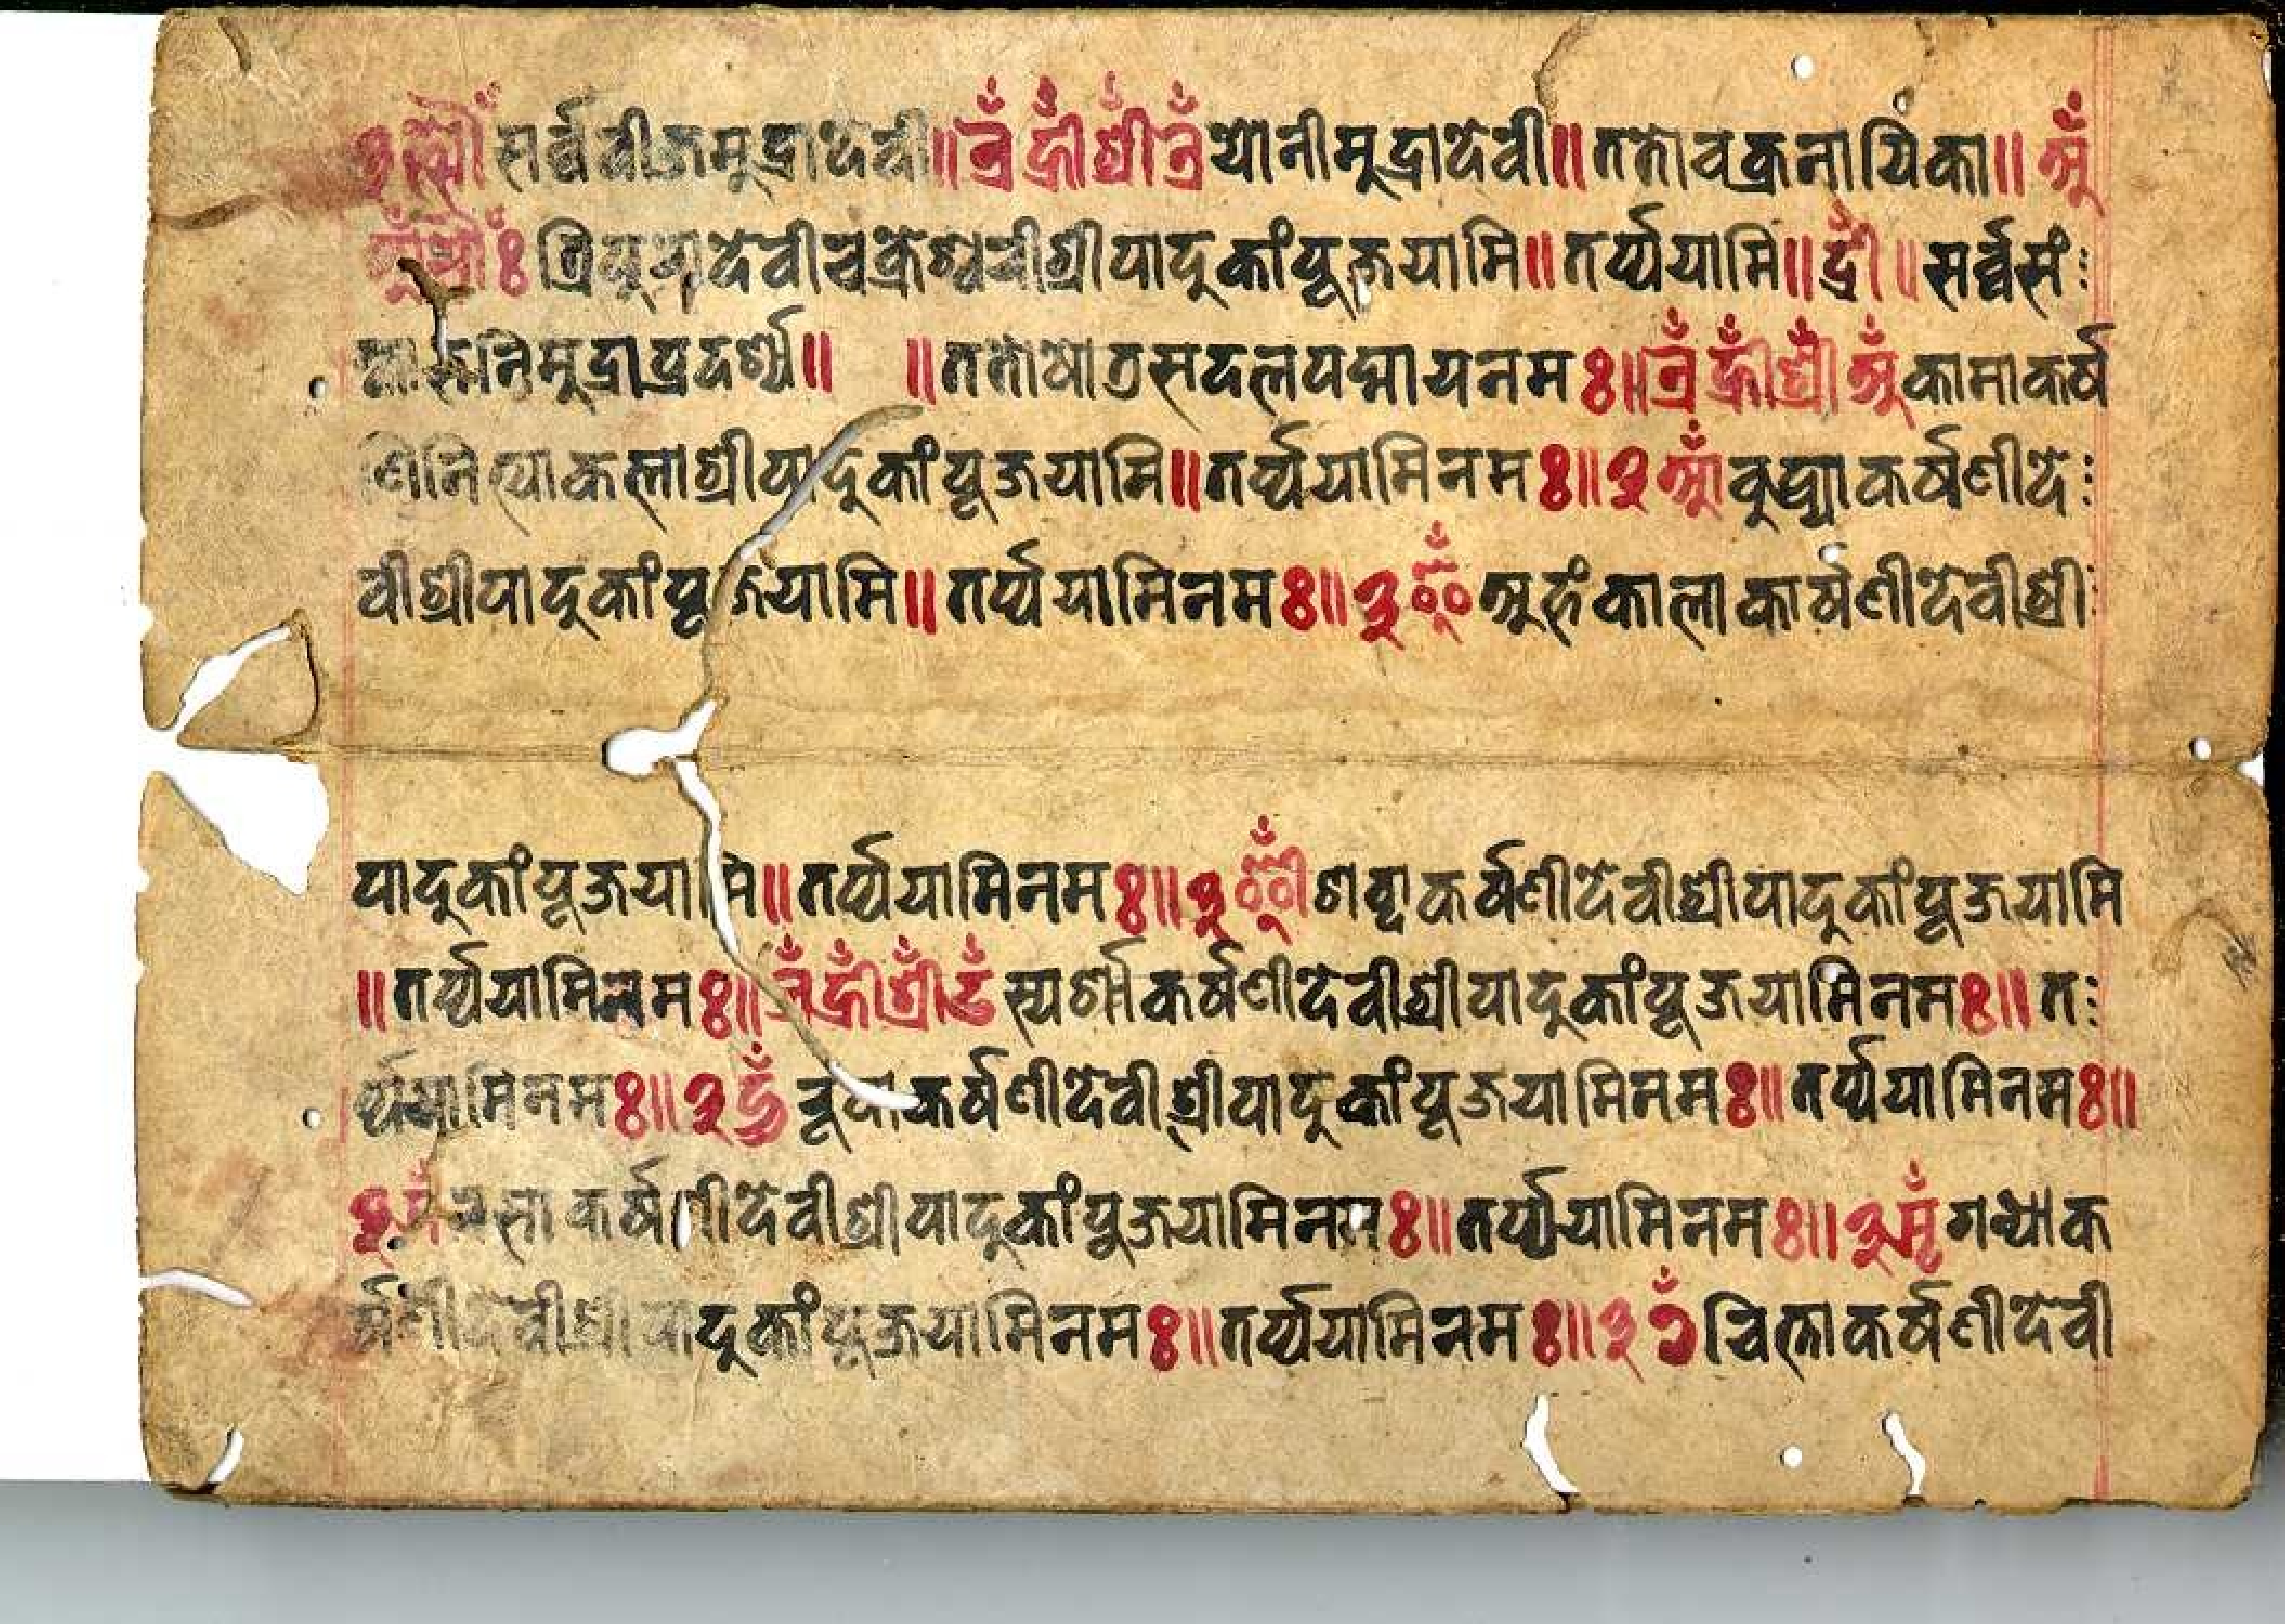 ह्स्रौँ सर्व्वबीजमुद्रादेवी॥ऐँ ह्रीँ श्रीँ ऐँ योनीमुद्रादेवी॥ततोचक्रनायिका॥अँ
त्रिपुरादेवीचक्रेश्वरीश्रीपादुकांपूजयामि॥तर्प्पयामि॥द्रीँ॥सर्व्वसं
मुद्राप्रदर्श्य॥ ॥ततोषोडसदलपद्मायनमः॥ऐँ ह्रीँ श्रीँ अँ कामाकर्ष
णिनित्याकलाश्रीपादुकांपूजयामि॥तर्प्पयामिनमः॥३आँ बुद्ध्याकर्षणीदे
वीश्रीपादुकांपूजयामि॥तर्प्पयामिनमः॥३इँ अहंकालाकार्षणीदेवीश्री
पादुकांपूजयामि॥तर्प्पयामिनमः॥३ईँ शब्दाकर्षणीदेवीश्रीपादुकांपूजयामि
॥तर्प्पयामिनमः॥ऐँ ह्रीँ श्रीँ उँ स्पर्शाकर्षणीदेवीश्रीपादुकांपूजयामिनमः॥त
र्प्पयामिनमः॥३ऊँ रूपाकर्षणीदेवीश्रीपादुकांपूजयामिनमः॥तर्प्पयामिनमः॥
रसाकर्षणीदेवीश्रीपादुकांपूजयामिनमः॥तर्प्पयामिनमः॥३ गन्धाक
र्षणीदेवीश्रीपादुकांपूजयामिनमः॥तर्प्पयामिनमः॥३ चित्ताकर्षणीदेवी